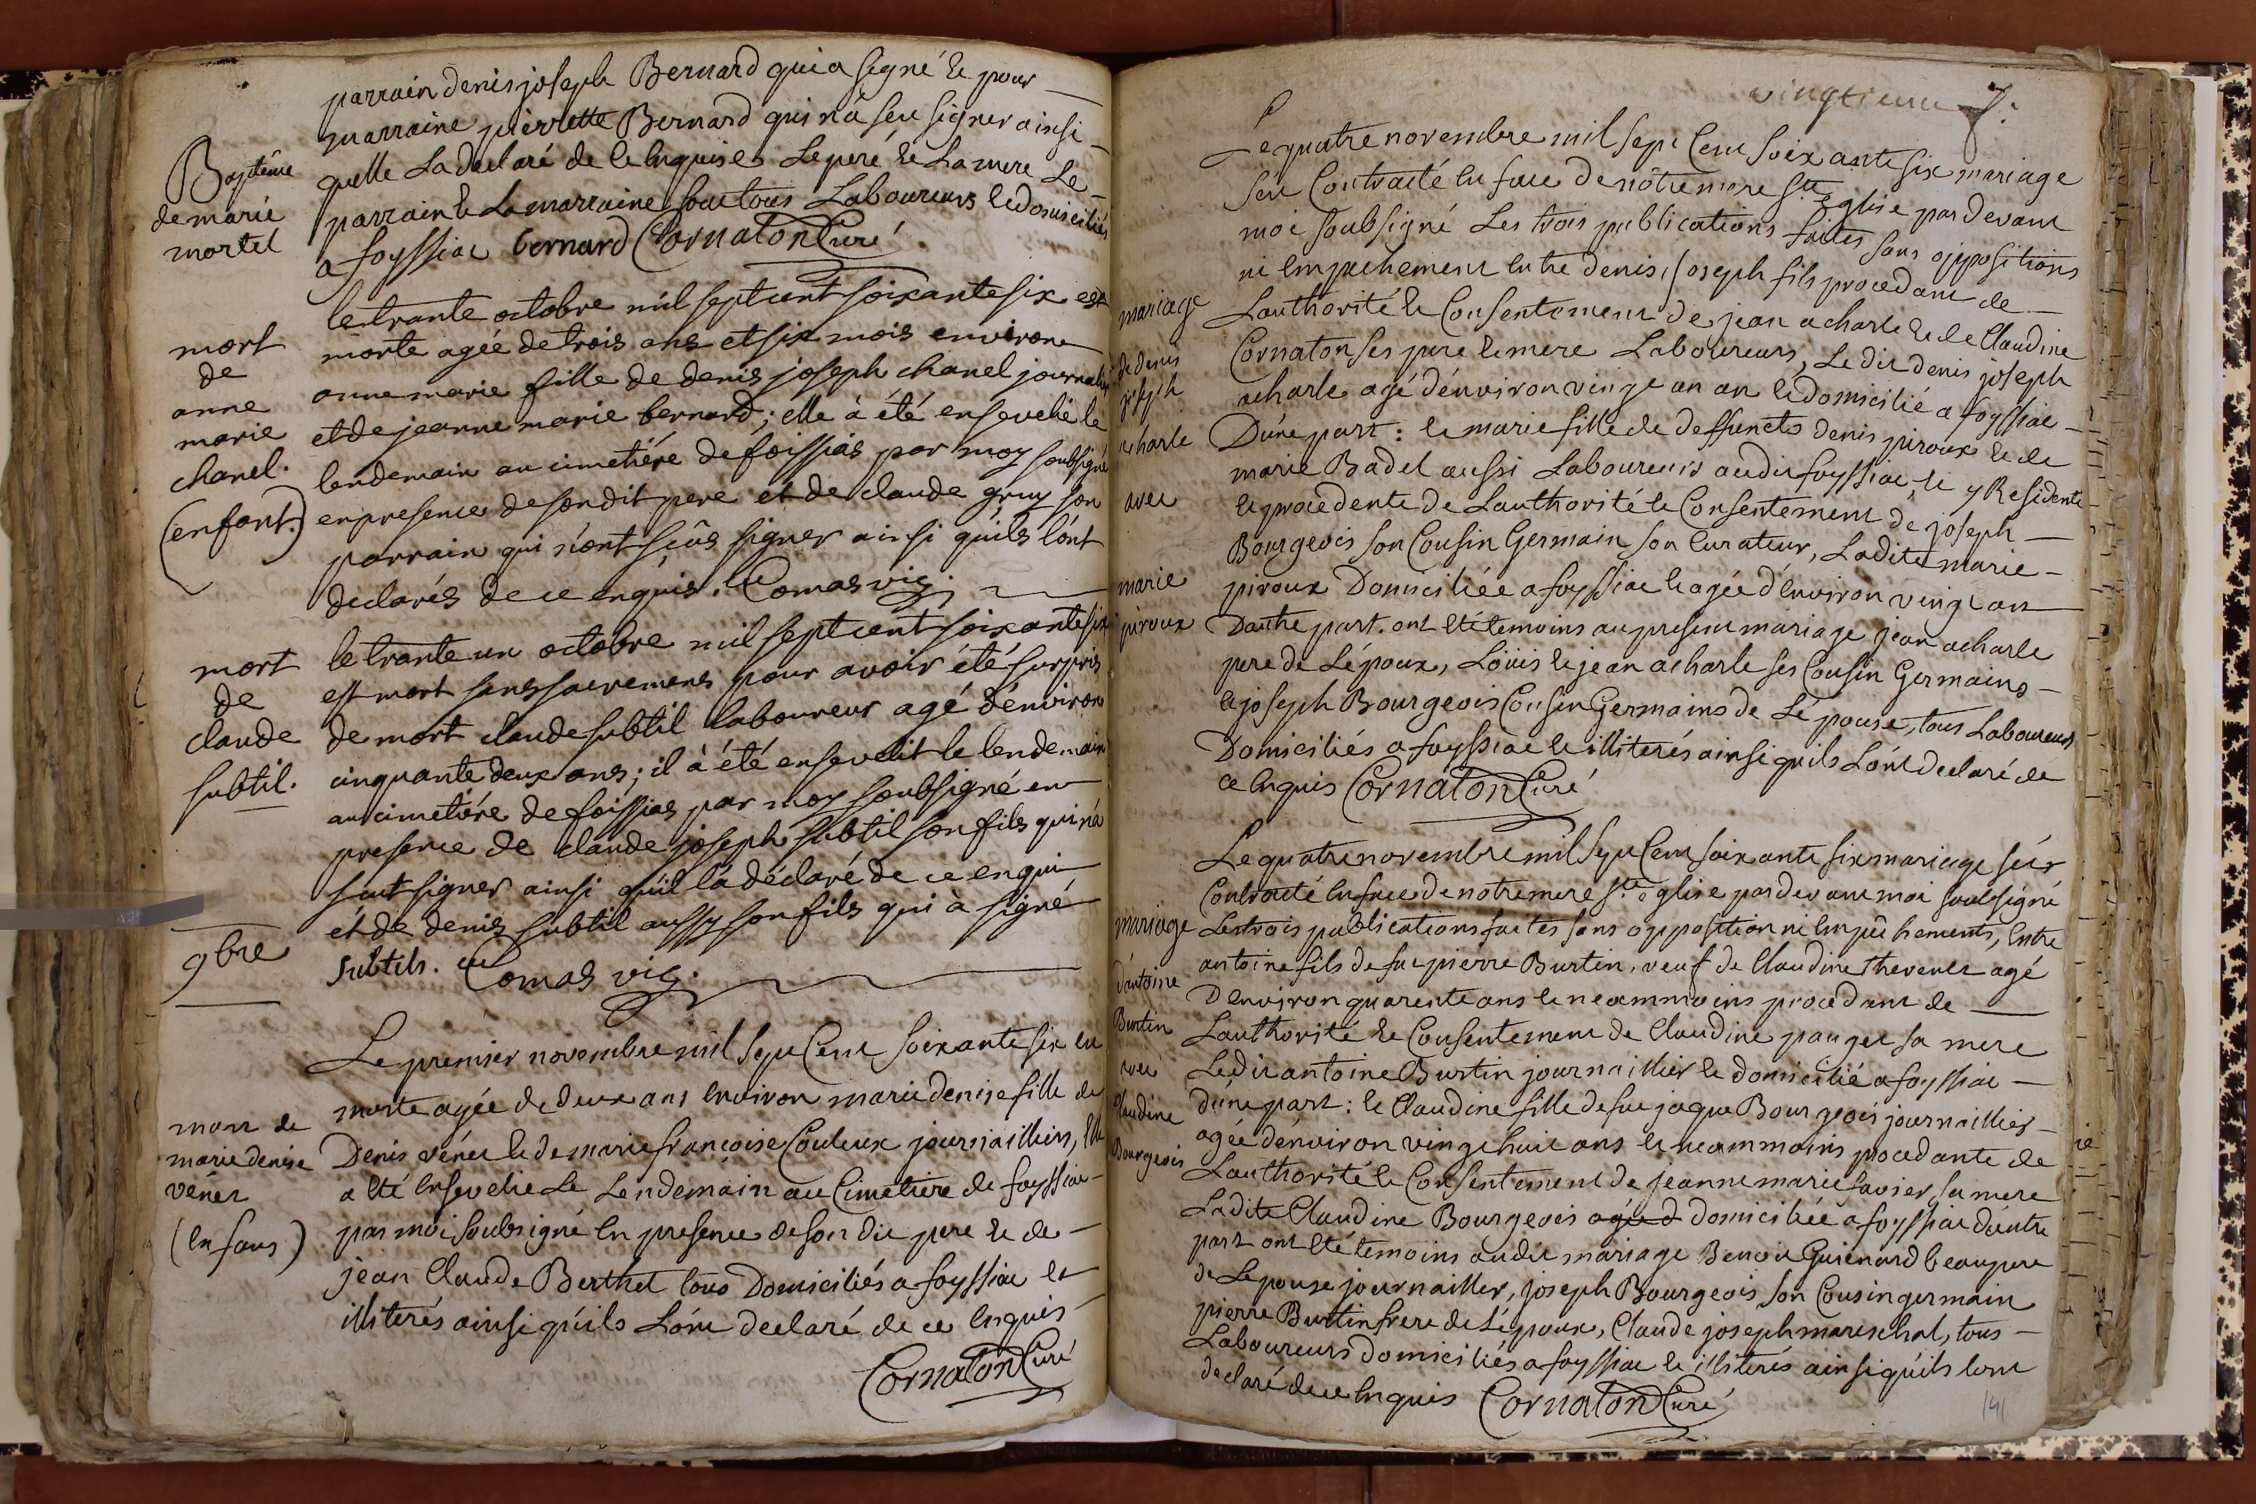 parrain denis joseph Bernard qui a signé & pour
marraine pierrette Bernard qui n'a sçu signer ainsi
quelle La declaré de ce Enquises Le peré & La mere Le
parrain & La marraine sont tous Laboureurs & domiciliés
a foyssiac bernard Cornaton Curé
Baptême
de marie
mortel
le trante octobre mil sept cent soixante six est
morte agée de trois ans et six mois environ
anne marie fille de denis joseph chanel journalier
et de jeanne marie bernard; elle à été ensevelie le
lendemain au cimetiére de foissias par moy soubsigné
en presence de son dit pere et de claude gruy son
parrain qui n'ont sçûs signer ainsi quils l'ont
declarés de ce enquis. Comas vic.
mort
de
anne
marie
chanel.
(enfant.)
le trante un octobre mil sept cent soixante six
est mort sans sacremens pour avoir été surpris
de mort claude subtil laboureur agé d'environ
cinquante deux ans; il à été ensevelit le lendemain
au cimetiére de foissias par moy soubsigné en
presence de claude joseph subtil son fils qui n'a
sçut signer ainsi quil la déclaré de ce enqui
ét de denis subtil aussy son fils qui à signé
Subtils. Comas vic.
mort
de
claude
subtil.
9bre
Le premier novembre mil sept Cent soixante six est
morte agée de deux ans Environ marie denise fille de
Denis véner & de marie françoise Couteux journailliers, Elle
a Eté Ensevelie Le Lendemain au Cimetiere de foyssiac
par moi soubsigné En presence de son dit pere & de
jean Claude Berthet tous Domiciliés a foyssiac et
illiterés ainsi qu'ils L'ont declaré de ce Enquis
Cornaton Curé
mort de
marie denise
véner
(Enfans)
vingtieme 7.
Le quatre novembre mil sept Cent soixante six mariage
sest Contracté En face de nôtre mere Ste Eglise par devant
moi soubsigné Les trois publications faites sans oppositions
ni Empechement Entre denis, joseph fils procedant de
Lauthorité & Consentement de jean acharle & de Claudine
Cornaton ses pere & mere Laboureurs, Le dit denis joseph
acharle agé d'environ vingt un an & domicilié a foyssiac
D'une part: & marie fille de deffuncts denis piroux & de
marie Badel aussi Laboureurs audit foyssiac & y Residente
& procedente de Lauthorité & Consentement de joseph
Bourgeois son Cousin Germain son Curateur, Ladite marie
piroux Domiciliée a foyssiac & agée d'environ vingt ans
Dautre part. ont été temoins au present mariage jean acharle
pere de L'époux, Loüis & jean acharle ses Cousin Germains
& joseph Bourgeois Cousin Germains de L'épouse, tous Laboureurs
Domiciliés a foyssiac & illiterés ainsi quils L'ont declaré de
ce Enquis Cornaton Curé
mariage
de denis
joseph
acharle
avec
marie
piroux
Le quatre novembre mil sept Cent soixante six mariage sest
Contracté En face de notre mere Ste Eglise par devant moi soubsigné
Les trois publications faites sans opposition ni Empêchements, Entre
antoine fils de fut pierre Burtin, veuf de Claudine thevenet agé
D'environ quarente ans & neammoins procedant de
Lauthorité & Consentement de Claudine pauget sa mere
Le dit antoine Burtin journaillier & domicilié a foyssiac
d'une part: & Claudine fille de fut jaque Bourgeois journaillier
agée d'environ vingt huit ans & neammoins procedante de
Lauthorité & Consentement de jeanne marie favier, sa mere
Ladite Claudine Bourgeois agée d domiciliée a foyssiac d'autre
part ont Eté temoins audit mariage Benoit Guienard beaupere
de Lepouse journaillier, joseph Bourgeois son Cousin germain
pierre Burtin frere de L'époux, Claude joseph mareschal, tous
Laboureurs domiciliés a foyssiac & illiterés ainsi qu'ils lont
declaré de ce Enquis Cornaton Curé
mariage
d'antoine
Burtin
avec
Claudine
Bourgeois
141